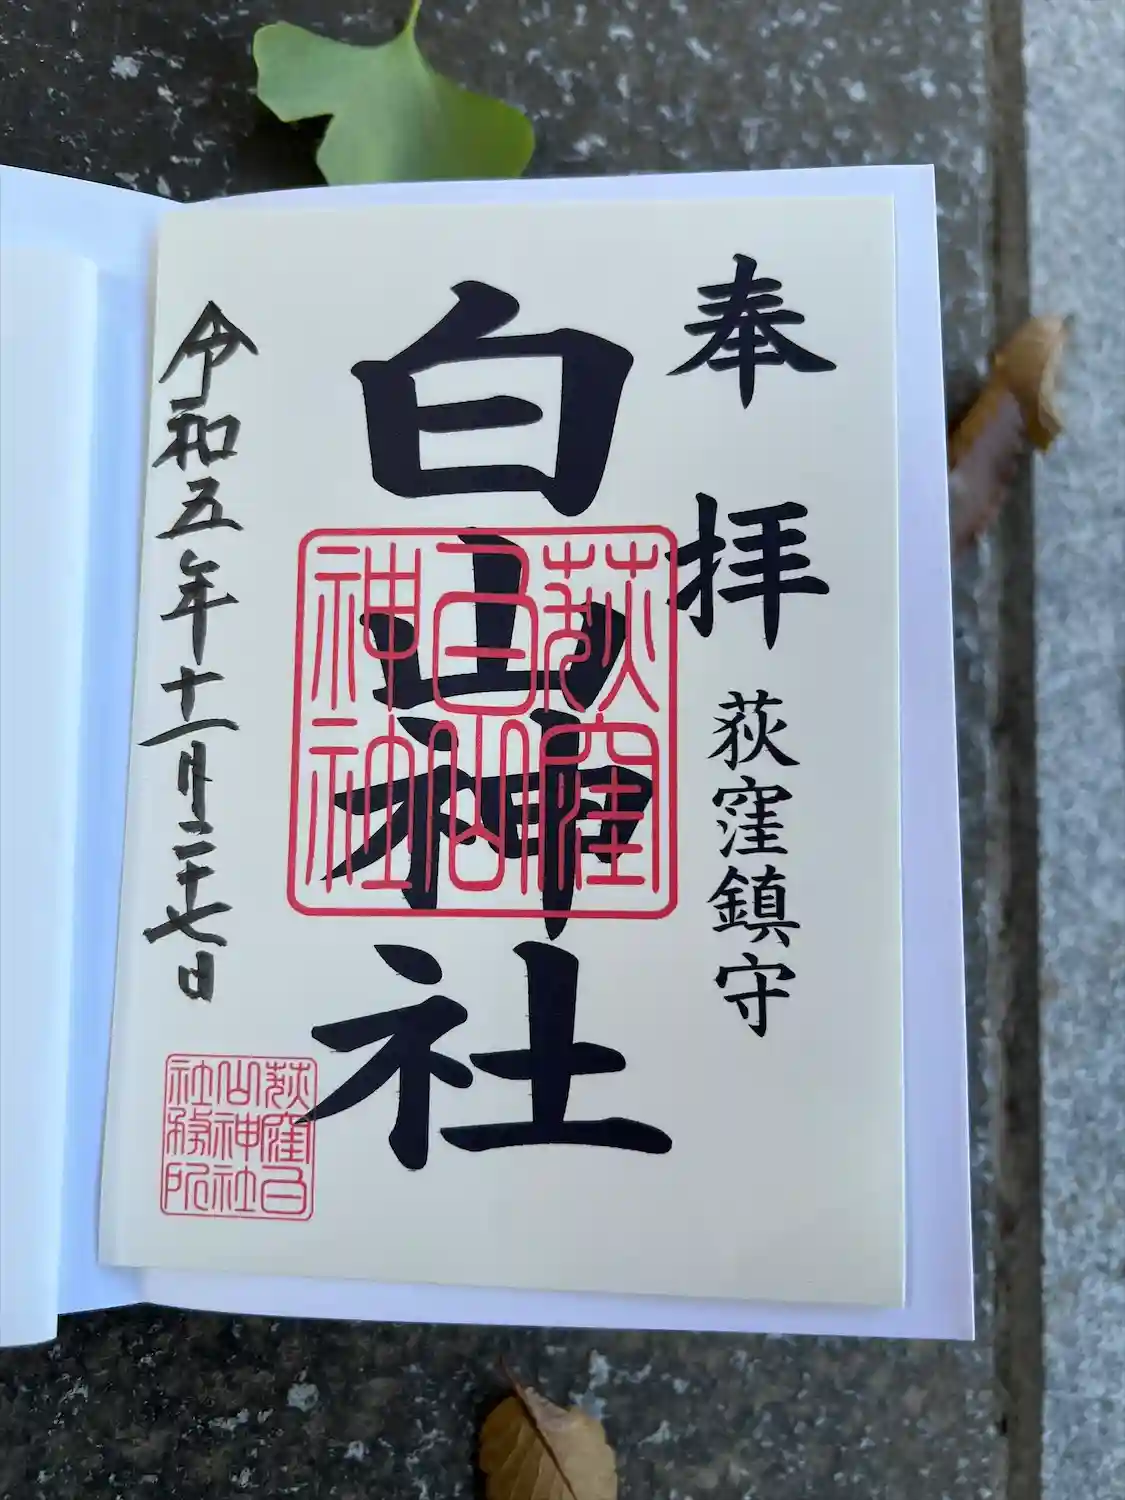 奉拝
荻窪鎮守
白山神社
荻窪
白山
神社
令和五年十一月二十七日
荻窪白
山神社
社務所